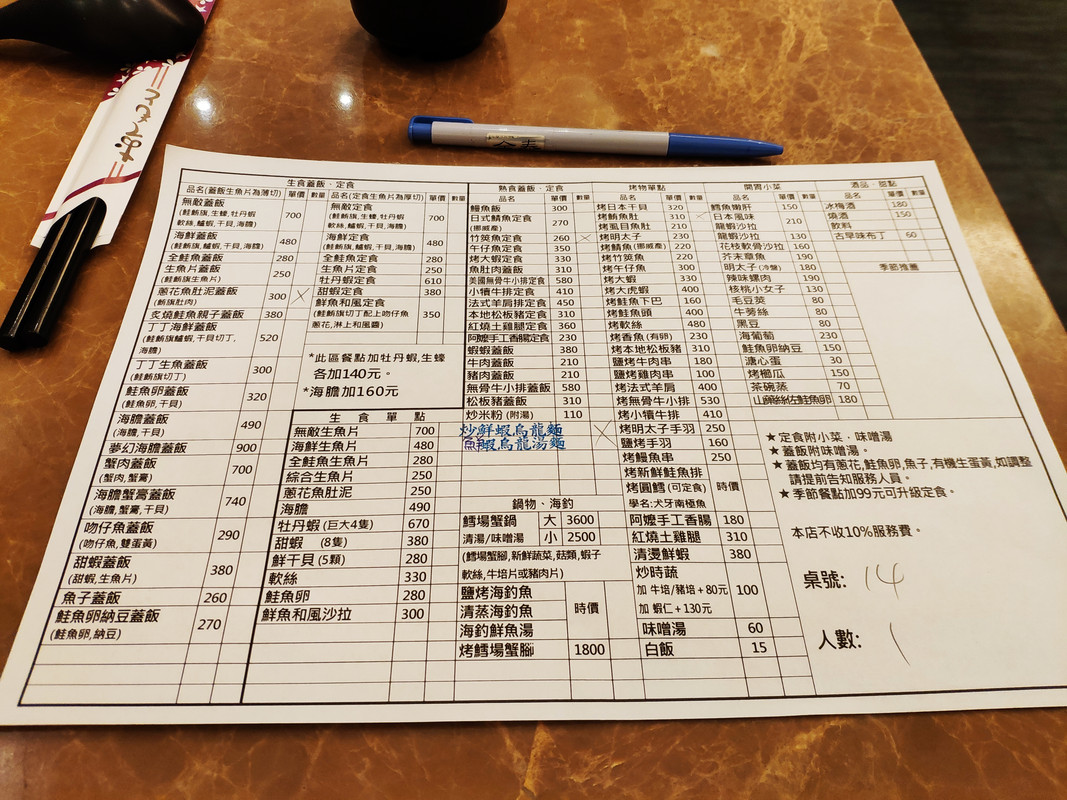 生食蓋飯、定食
品名(蓋飯生魚片為薄切) 單價 數量
無敵蓋飯 700
(鮭鮪旗,生蠔,牡丹蝦
軟絲,鱸蝦,干貝,海膽)
海鮮蓋飯 480
(鮭鮪旗,鱸蝦,干貝,海膽)
全鮭魚蓋飯 280
生魚片蓋飯 250
(鮭鮪旗生魚片)
蔥花魚肚泥蓋飯 300
(鮪旗肚肉)
炙燒鮭魚親子蓋飯 380
丁丁海鮮蓋飯 520
(鮭鮪旗鱸蝦,干貝切丁,
海膽)
丁丁生魚蓋飯 300
(鮭鮪旗切丁)
鮭魚卵蓋飯 320
(鮭魚卵,干貝)
海膽蓋飯 490
(海膽,干貝)
夢幻海膽蓋飯 900
蟹肉蓋飯 700
(蟹肉,蟹膏)
海膽蟹膏蓋飯 740
(海膽,蟹膏,干貝)
吻仔魚蓋飯 290
(吻仔魚,雙蛋黃)
甜蝦蓋飯 380
(甜蝦,生魚片)
魚子蓋飯 260
鮭魚卵納豆蓋飯 270
(鮭魚卵,納豆)
品名(定食生魚片為厚切) 單價 數量
無敵定食 700
(鮭鮪旗,生蠔,牡丹蝦
軟絲,鱸蝦,干貝,海膽)
海鮮定食 480
(鮭鮪旗,鱸蝦,干貝,海膽)
全鮭魚定食 280
生魚片定食 250
牡丹蝦定食 610
甜蝦定食 380
鮮魚和風定食 350
(鮭鮪旗切丁配上吻仔魚
蔥花,淋上和風醬)
*此區餐點加牡丹蝦,生蠔
各加140元。
*海膽加160元
生食單點
無敵生魚片 700
海鮮生魚片 480
全鮭魚生魚片 280
綜合生魚片 250
蔥花魚肚泥 250
海膽 490
牡丹蝦(巨大4隻) 670
甜蝦 (8隻) 380
鮮干貝(5顆) 280
軟絲 330
鮭魚卵 280
鮮魚和風沙拉 300
熟食蓋飯、定食
品名 單價 數量
鰻魚飯 300
日式鯖魚定食 270
(挪威產)
竹筴魚定食 260
午仔魚定食 350
魚肚肉蓋飯 310
美國無骨牛小排定食 580
小犢牛排定食 410
法式羊肩排定食 450
本地松板豬定食 310
紅燒土雞腿定食 360
阿嬤手工香腸定食 230
蝦蝦蓋飯 380
牛肉蓋飯 210
豬肉蓋飯 210
無骨牛小排蓋飯 580
松板豬蓋飯 310
炒米粉 (附湯) 110
炒鮮蝦烏龍麵
魚蝦烏龍湯麵
鍋物、海釣
鱈場蟹鍋 大 3600
清湯/味噌湯 小 2500
(鱈場蟹腳,新鮮蔬菜,菇類,蝦子
軟絲,牛培片或豬肉片)
鹽烤海釣魚 時價
清蒸海釣魚
海釣鮮魚湯
烤鱈場蟹腳 1800
烤物單點
品名 單價 數量
烤日本干貝 320
烤鮪魚肚 310
烤虱目魚肚 210
烤明太子 230
烤鯖魚(挪威產) 220
烤竹筴魚 220
烤午仔魚 300
烤大蝦 330
烤大虎蝦 400
烤鮭魚下巴 160
烤鮭魚頭 400
烤軟絲 480
烤香魚(有卵) 230
烤本地松板豬 310
鹽烤牛肉串 180
鹽烤雞肉串 100
烤法式羊肩 400
烤無骨牛小排 530
烤小犢牛排 410
烤明太子手羽 250
鹽烤手羽 160
烤鰻魚串 250
烤新鮮鮭魚排 時價
烤圓鱈(可定食)
學名:犬牙南極魚
阿嬤手工香腸 180
紅燒土雞腿 310
清燙鮮蝦 380
炒時蔬 100
加 牛培/豬培+80元
加 蝦仁+130元
味噌湯 60
白飯 15
開胃小菜
品名 單價 數量
鱈魚嫩肝 150
日本風味 210
龍蝦沙拉
龍蝦沙拉 130
花枝軟骨沙拉 160
芥末章魚 190
明太子(冷盤) 180
辣味螺肉 190
核桃小女子 130
毛豆莢 80
牛蒡絲 80
黑豆 80
海葡萄 230
鮭魚卵納豆 150
溏心蛋 30
烤櫛瓜 150
茶碗蒸 70
山藥絲佐鮭魚卵 180
酒品、甜點
品名 單價 數量
冰梅酒 180
燒酒 150
飲料
古早味布丁 60
季節推薦
★定食附小菜、味噌湯
★蓋飯附味噌湯。
★蓋飯均有蔥花,鮭魚卵,魚子,有機生蛋黃,如調整
請提前告知服務人員。
★季節餐點加99元可升級定食。
本店不收10%服務費。
桌號: 14
人數: 1